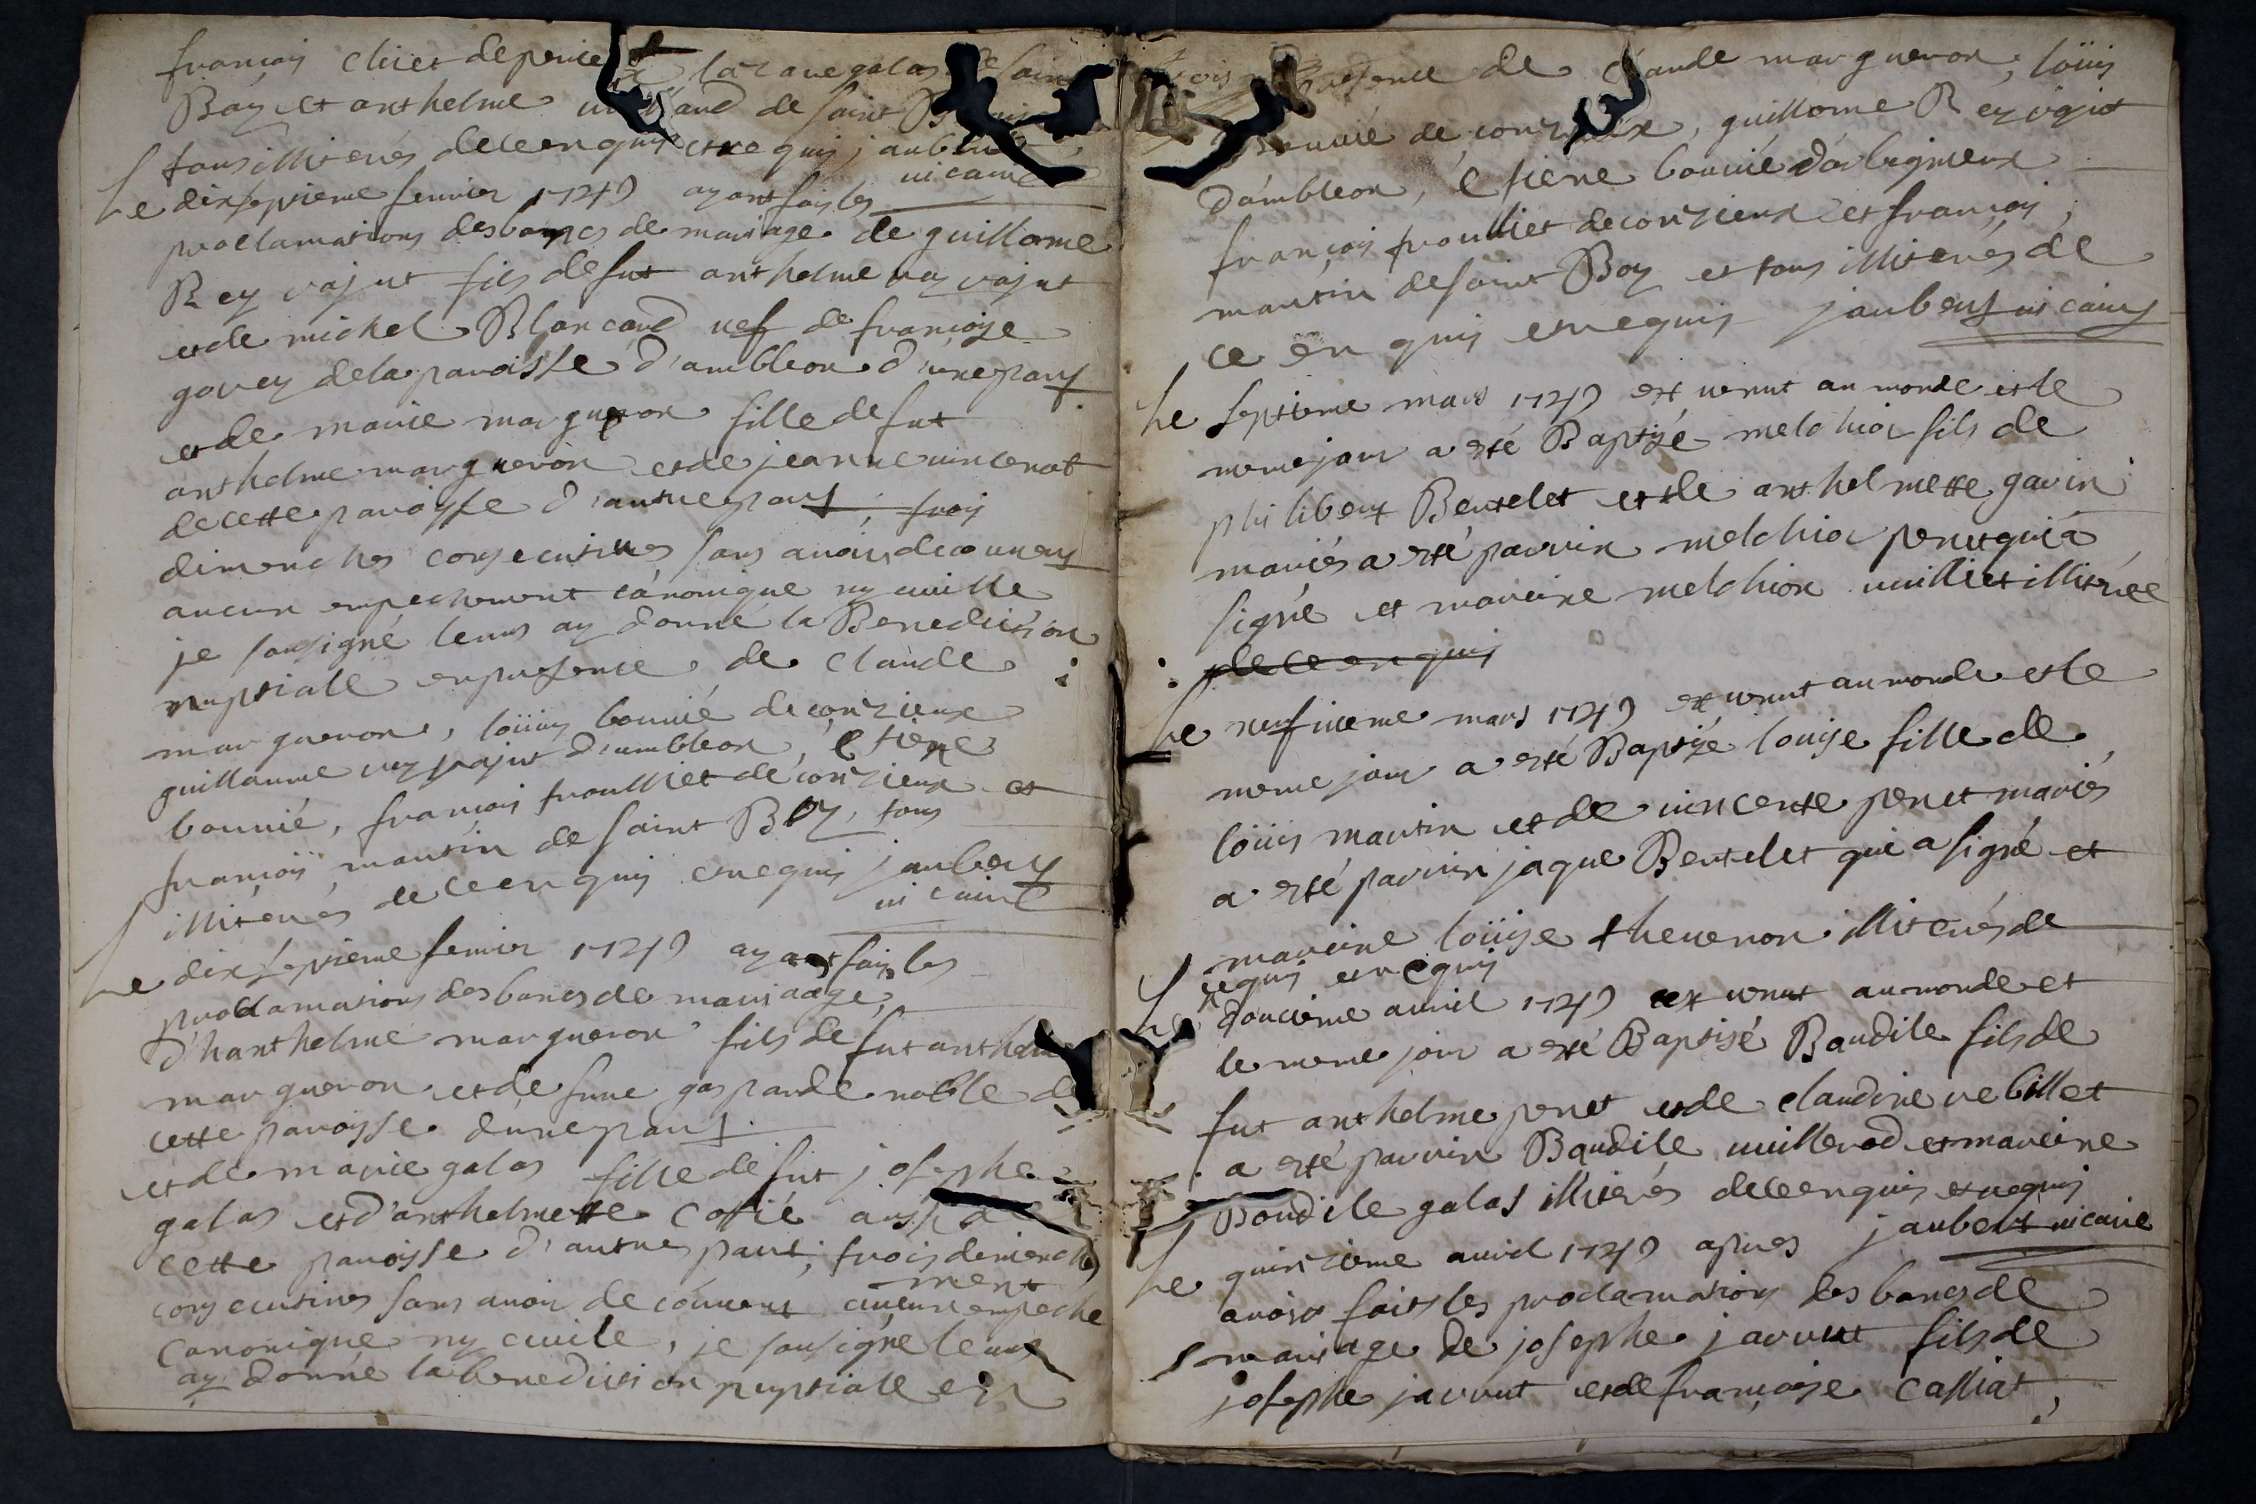 françois chiet de peric lazare galas de saint
Boy et anthelme de saint
tous illiterés de ce enquis et requis jaubert
vicaire
Le dixseptieme fevrier 1749 ayant fait les
proclamations des bancs de mariage de guillaume
Rey vajut fils de fut anthelme rey vajut
et de michel Blancard vef de françoise
govey de la paroisse d'ambleon d'une part
et de marie margueron fille de fut
anthelme margueron et de jeanne vincenot
de cette paroisse d'autre part, trois
dimenches consecutives sans avoir decouvert
aucun empechement canonique ny civille
je sousigné leurs ay donné la Benediction
nuptialle en presence de claude
margueron, loüis bouvié de conzieux
guillaume rey vajut d'ambleon, étiene
bouvié, françois trouilliet de conzieux et
françois martin de saint Boy, tous
illiterés de ce enquis et requis jaubert
vicaire
Le dixseptieme fevrier 1749 ayant fait les
proclamations des bancs de mariage,
d'hanthelme margueron fils de fut anthelme
margueron et de fuue gasparde noble de
cette paroisse d'une part
et de marie galas fille de fut josephe
galas et d'anthelmette cotié aussi de
cette paroisse d'autre part, trois dimenche
consecutives sans avoir decouvert aucun empeche
ment
canonique ny civile, je sousigné leurs
ay donné la benediction nuptialle en
presence de claude margueron, loüis
de conzieux, guillome Rey vajut
d'ambleon, étiene bouvié d'arbignieux
françois trouilliet de conzieux et françois
martin de saint Boy et tous illiterés de
ce enquis et requis jaubert vicaire
Le septieme mars 1749 est venut au monde et le
meme jour a esté Baptisé melchior fils de
philibert Bertelet et de anthelmette gavin
mariés a esté parrin melchior peret qui a
signé et mareine melchion vuilliet illiterée
de ce enquis
Le neufvieme mars 1749 est venut au monde et le
meme jour a esté Baptisé louise fille de
loüis martin et de vincente peret mariés
a esté parrin jaque Bertelet qui a signé et
mareine loüise thevenon illiterés de
ce quis et requis
Le douzieme avril 1749 est venut au monde et
le meme jour a esté Baptisé Baudile fils de
fut anthelme peret et de claudine rebillet
a esté parrin Baudile vuillerod et mareine
Boudile galas illiterés de ce enquis et requis
jaubert vicaire
Le quinzieme avril 1749 apres
avoir fait les proclamations des bancs de
mariage de josephe jarrut fils de
josephe jarrut et de françoise calliat,